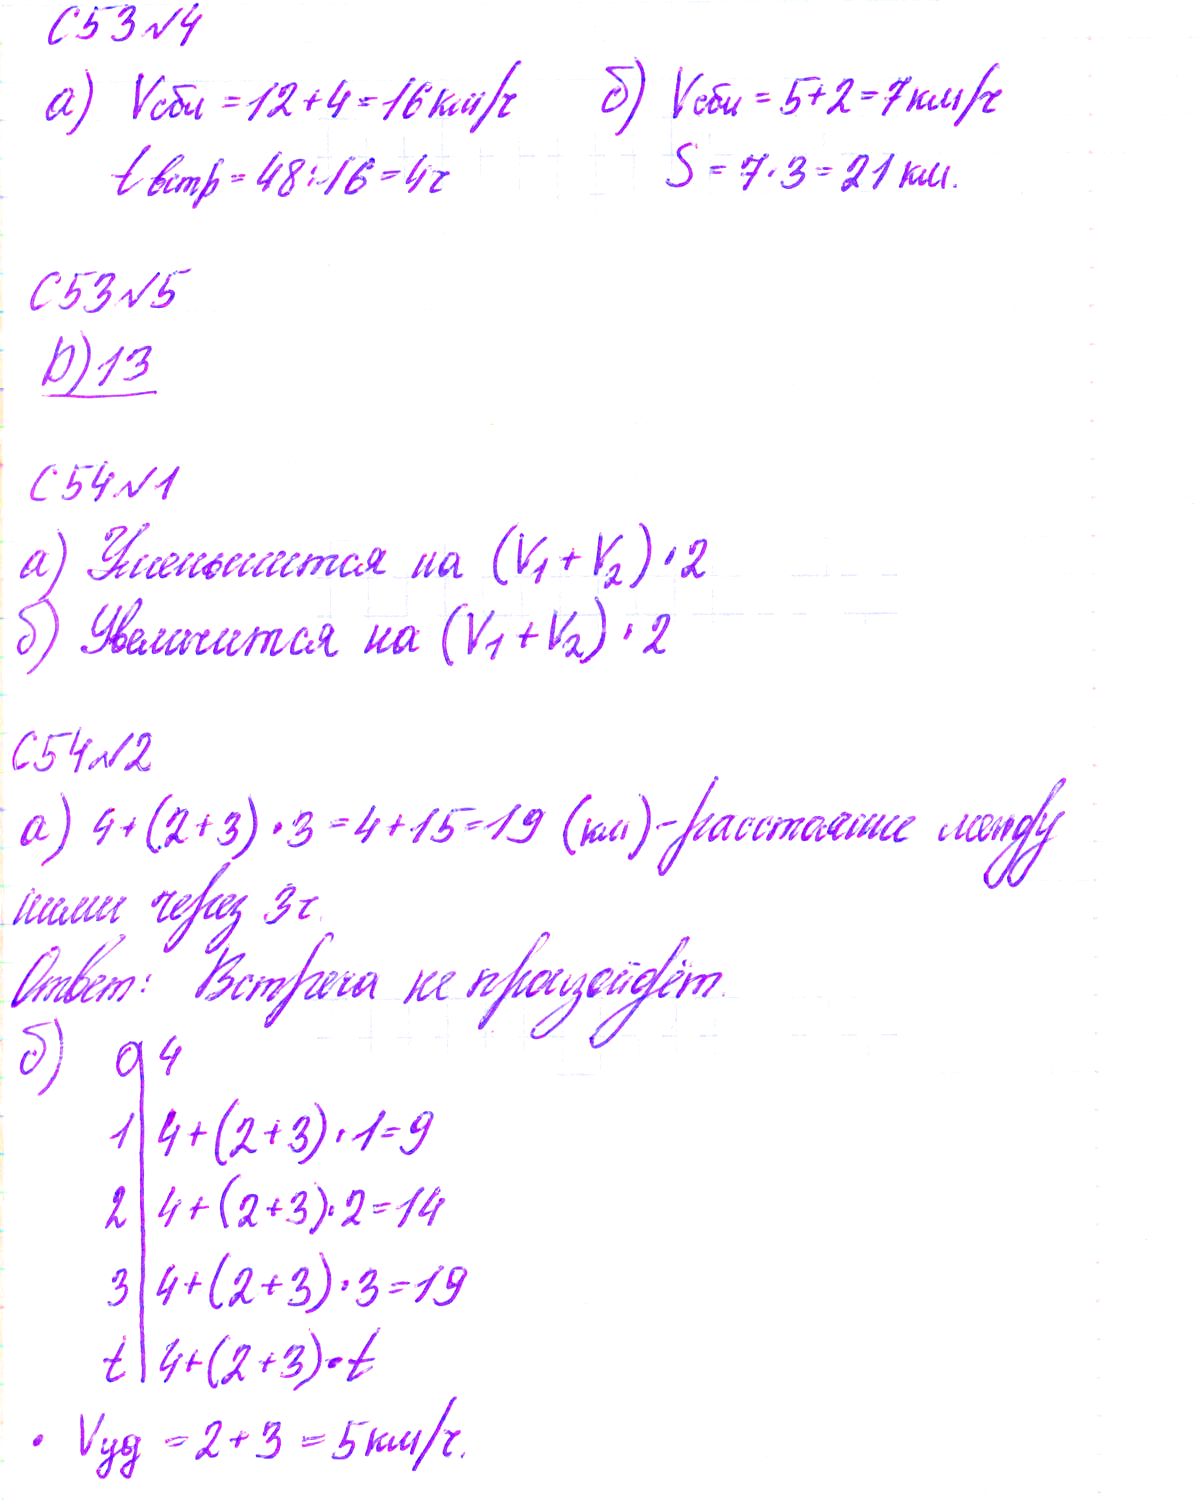 С53№4
а) Vсбл = 12+4=16км/ч
tвстр = 48:16=4ч
б) Vсбл = 5+2=7км/ч
S = 7·3=21км.
С53№5
D)13
С54№1
а) Уменьшится на (V₁+V₂)·2
б) Увеличится на (V₁+V₂)·2
С54№2
а) 4+(2+3)·3=4+15=19 (км)-расстояние между
ними через 3ч.
Ответ: Встреча не произойдёт.
б) 0|4
1|4+(2+3)·1=9
2|4+(2+3)·2=14
3|4+(2+3)·3=19
t|4+(2+3)·t
· Vуд = 2+3=5км/ч.